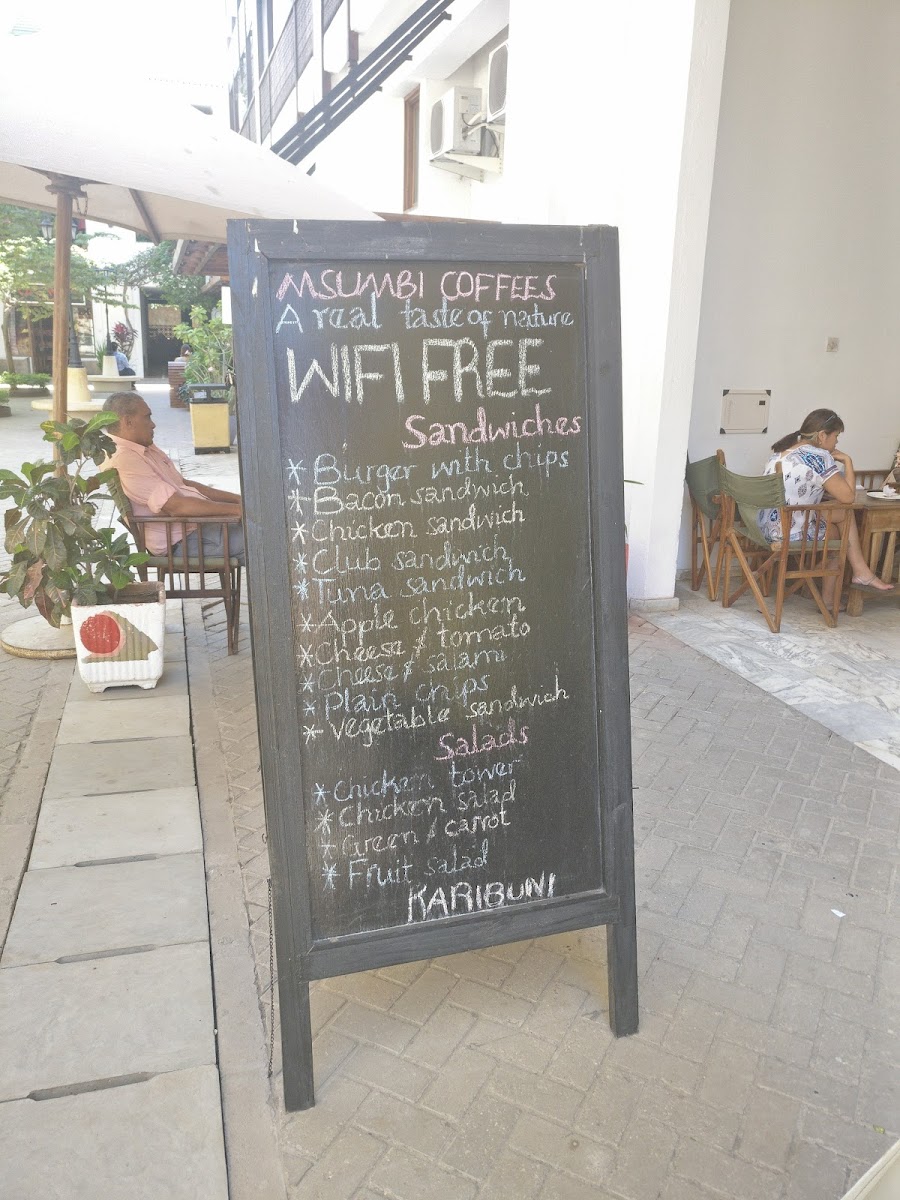 MSUMBI COFFEES
A real taste of nature
WIFI FREE
Sandwiches
* Burger with chips
* Bacon sandwich
* Chicken sandwich
* Club sandwich
* Tuna sandwich
* Apple chicken
* Cheese / tomato
* Cheese / salami
* Plain chips
* Vegetable sandwich
Salads
* Chicken tower
* Chicken salad
* Green / carrot
* Fruit salad
KARIBUNI